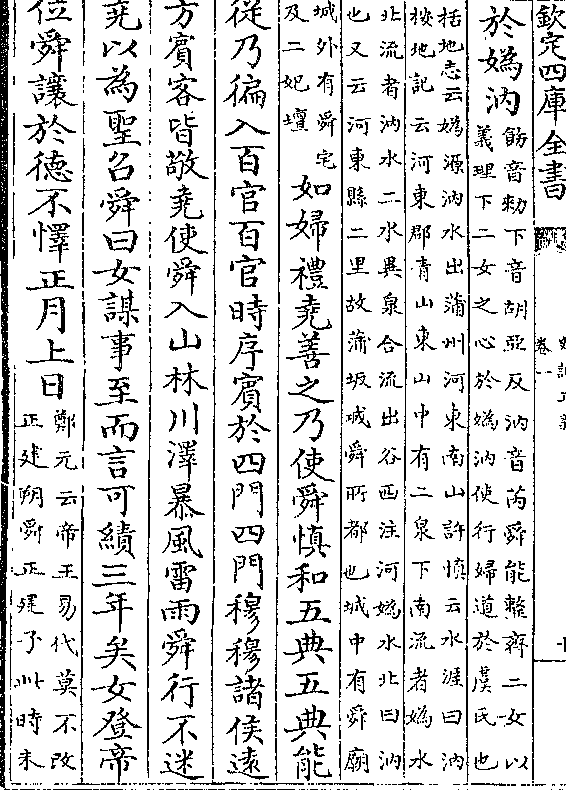 欽定四庫全書
卷一
於媯汭
飭音勑下音胡亞反汭音芮舜能整齊二女以
義理下二女之心於媯汭使行婦道於虞氏也
括地志云媯源汭水出蒲州河東南山許慎云水涯曰汭
桉地記云河東郡青山東山中有二泉下南流者媯水
北流者汭水二水異泉合流出谷西注河媯水北曰汭
也又云河東縣二里故蒲坂城舜所都也城中有舜廟
城外有舜宅
及二妃壇
如婦禮堯善之乃使舜慎和五典五典能
從乃徧入百官百官時序賓於四門四門穆穆諸侯遠
方賓客皆敬堯使舜入山林川澤暴風雷雨舜行不迷
堯以為聖召舜曰女謀事至而言可績三年矣女登帝
位舜讓於德不懌正月上日
鄭元云帝王易代莫不改
正建朔舜正建子此時未